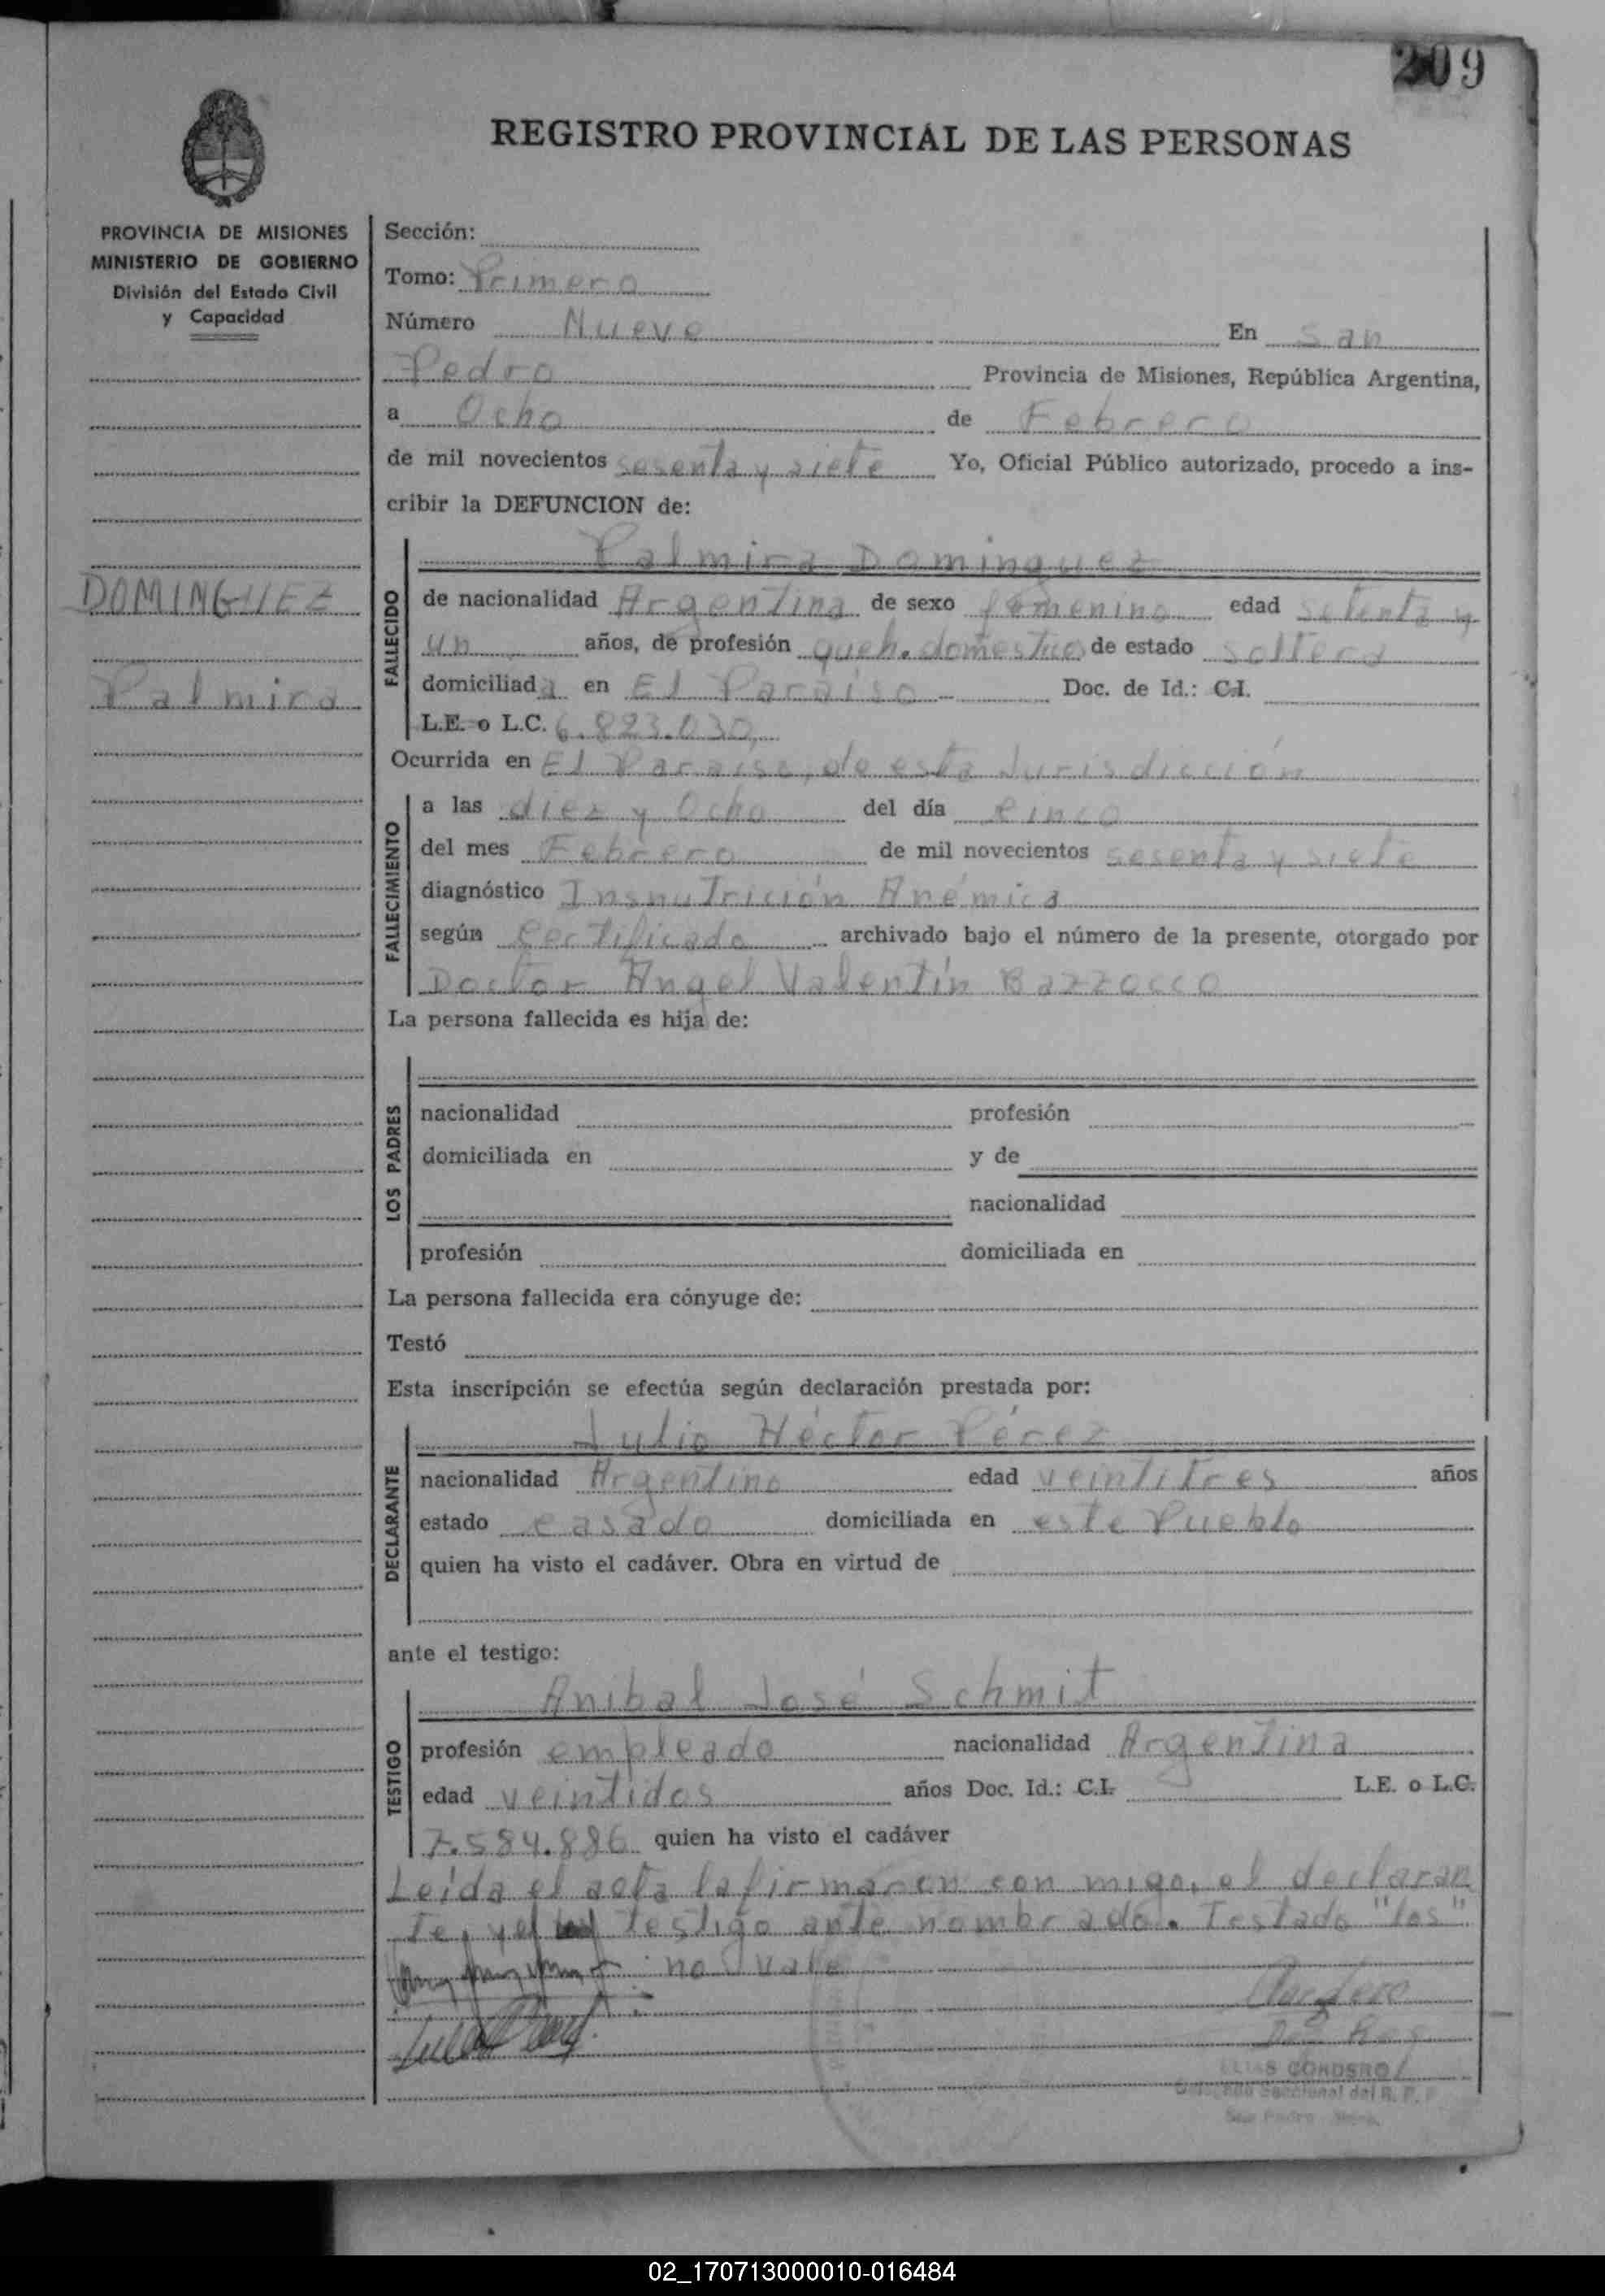 209
REGISTRO PROVINCIAL DE LAS PERSONAS
PROVINCIA DE MISIONES
MINISTERIO DE GOBIERNO
División del Estado Civil
y Capacidad
DOMINGUEZ
Palmira
Sección:
Tomo: Primero
Número Nueve En San
Pedro Provincia de Misiones, República Argentina,
a Ocho de Febrero
de mil novecientos sesenta y siete Yo, Oficial Público autorizado, procedo a ins-
cribir la DEFUNCION de:
FALLECIDO
Palmira Dominguez
de nacionalidad Argentina de sexo femenino edad setenta y
un años, de profesión queh. domesticos de estado soltera
domiciliada en El Paraiso Doc. de Id.: C.I.
L.E. o L.C. 6.823.030
Ocurrida en El Paraiso, de esta Jurisdicción
FALLECIMIENTO
a las diez y Ocho del día cinco
del mes Febrero de mil novecientos sesenta y siete
diagnóstico Insnutrición Anémica
según Certificado archivado bajo el número de la presente, otorgado por
Doctor Angel Valentín Bazzocco
La persona fallecida es hija de:
LOS PADRES
nacionalidad profesión
domiciliada en y de
nacionalidad
profesión domiciliada en
La persona fallecida era cónyuge de:
Testó
Esta inscripción se efectúa según declaración prestada por:
DECLARANTE
Julio Héctor Pérez
nacionalidad Argentino edad veintitres años
estado casado domiciliada en este Pueblo
quien ha visto el cadáver. Obra en virtud de
ante el testigo:
TESTIGO
Anibal José Schmit
profesión empleado nacionalidad Argentina
edad veintidos años Doc. Id.: C.I. L.E. o L.C.
7.584.886 quien ha visto el cadáver
Leída el acta la firmáran con migo, el declaran
te, y el testigo ante nombrado. Testado "los"
no vale
ELIAS CORDERO
Seccional del R. P.
San Pedro
02_170713000010-016484